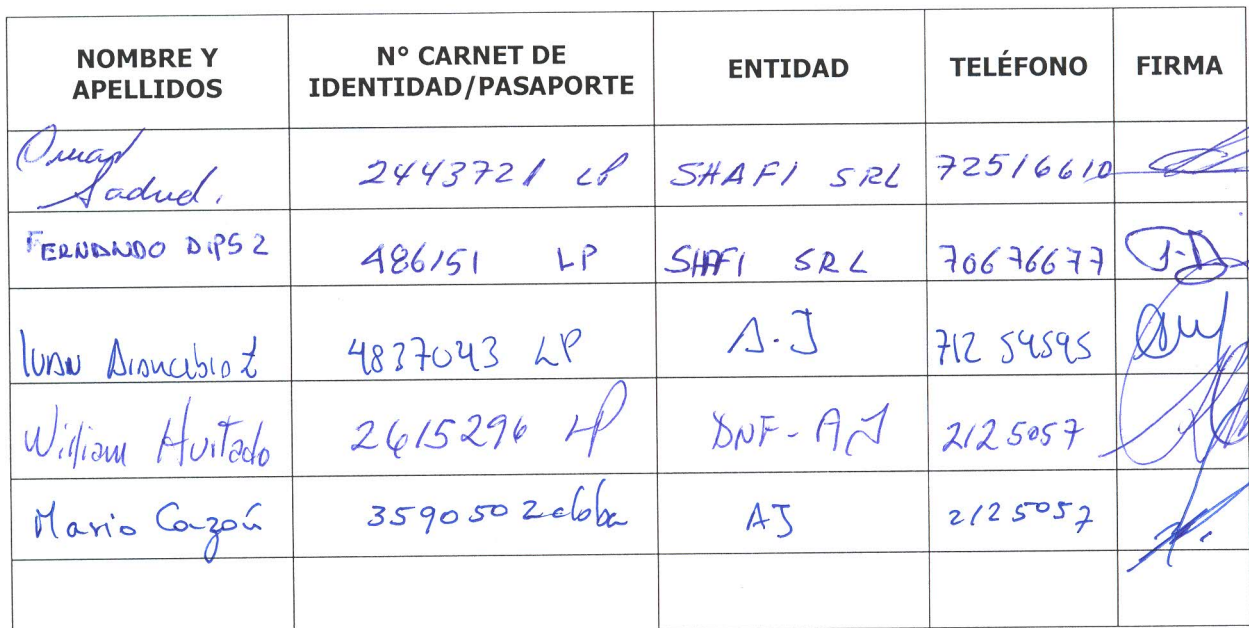 NOMBRE Y APELLIDOS N° CARNET DE IDENTIDAD/PASAPORTE ENTIDAD TELÉFONO FIRMA
Omar 2443721 LP SHAFI SRL 72516610
FERNANDO 486151 LP SHAFI SRL 70676677
4837043 LP A.J 712 54595
William Hurtado 2615296 LP DNF-AJ 2125057
Mario 3590502 AJ 2125057